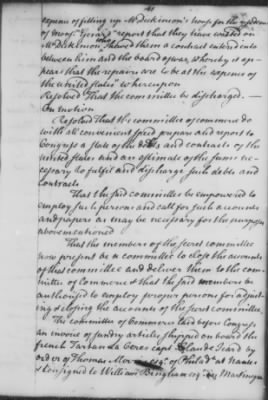 expence of fitting up Mr Dickinson's house for the residence
of Monsr Gerard report that they have waited on
Mr Dickinson who shewed them a contract entered into
between him and the board of war, whereby it ap-
pears that the repairs are to be at the expence of
the united states" whereupon
Resolved That the committee be discharged. —
On motion
Resolved That the committee of commerce do
with all convenient speed prepare and report to
Congress a state of the debts and contracts of the
united states and an estimate of the sums ne-
cessary to fulfil and discharge such debts and
contracts
That the said committee be empowered to
employ such persons and call for such accounts
and papers as may be necessary for the purposes
abovementioned
That the members of the secret committee
now present be a committee to close the accounts
of that committee and deliver them to the com-
mittee of Commerce & that the said members be
authorised to employ proper persons for adjust-
ing & closing the accounts of the secret committee.
The committee of Commerce laid before Congress
an invoice of sundry articles shipped on board the
french Tartan la Ceres capt by
order of Thomas Morris esqr of Philada at Nantes
& consigned to William Bingham esqr in Martinique